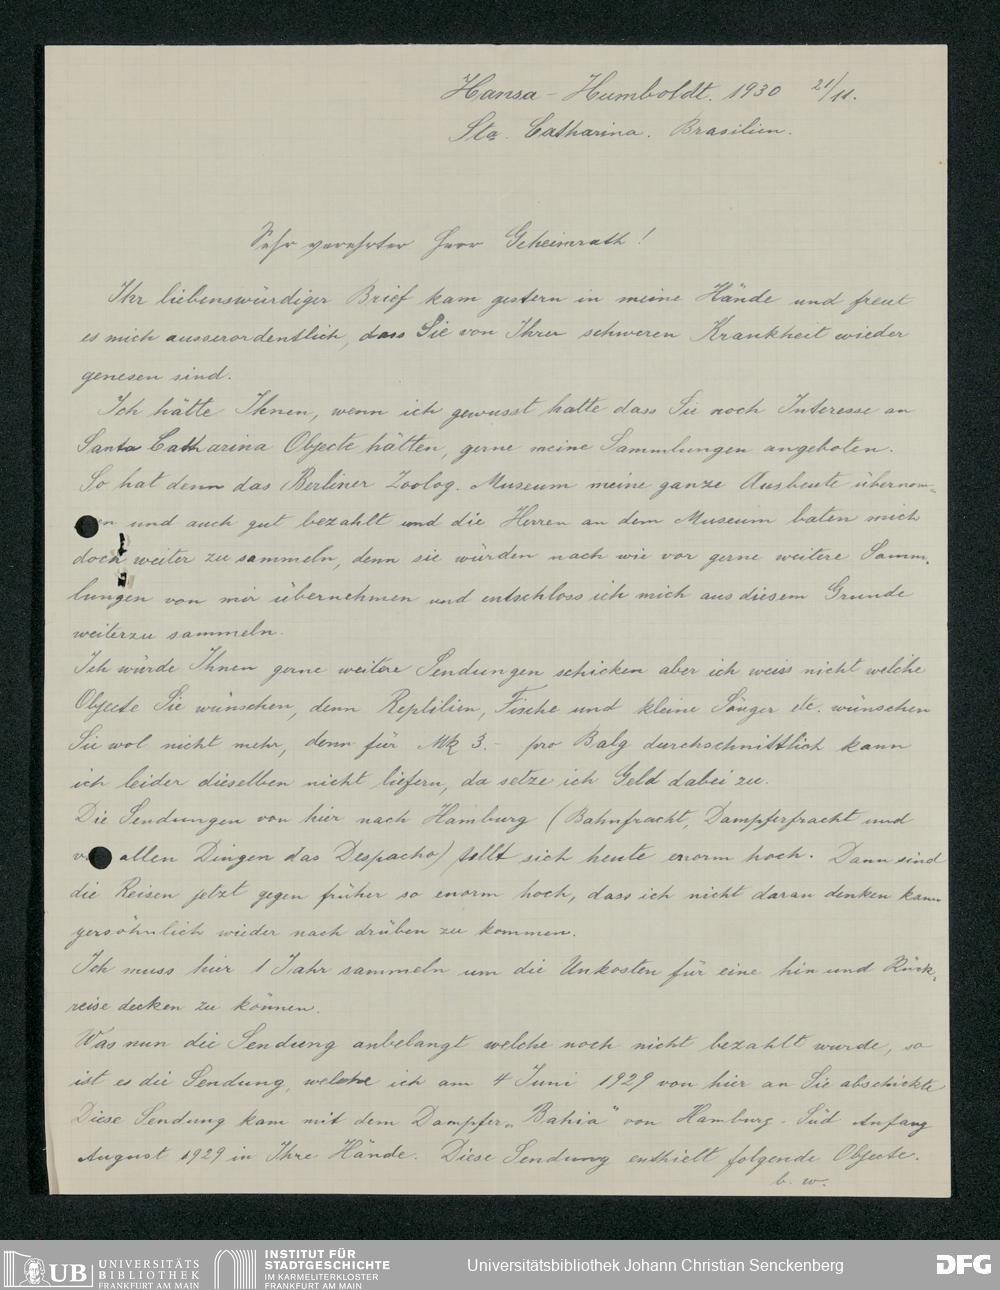 Hansa-Humboldt. 1930 21/11.
Sta. Catharina. Brasilien.
Sehr verehrter Herr Geheimrath!
Ihr liebenswürdiger Brief kam gestern in meine Hände und freut
es mich ausserordentlich, dass Sie von Ihrer schweren Krankheit wieder
genesen sind.
Ich hätte Ihnen, wenn ich gewusst hatte dass Sie noch Interesse an
Santa Catharina Objecte hätten, gerne meine Sammlungen angeboten.
So hat denn das Berliner Zoolog. Museum meine ganze Ausbeute übernom-
en und auch gut bezahlt und die Herren an dem Museum baten mich
doch weiter zu sammeln, denn sie würden nach wie vor gerne weitere Samm-
lungen von mir übernehmen und entschloss ich mich aus diesem Grunde
weiterzu sammeln.
Ich würde Ihnen gerne weitere Sendungen schicken aber ich weiss nicht welche
Objecte Sie wünschen, denn Reptilien, Fische und kleine Säuger etc. wünschen
Sie wol nicht mehr, denn für Mk 3.- pro Balg durchschnittlich kann
ich leider dieselben nicht liefern, da setze ich Geld dabei zu.
Die Sendungen von hier nach Hamburg (Bahnfracht, Dampferfracht und
v allen Dingen das Despacho) stellt sich heute enorm hoch. Dann sind
die Reisen jetzt gegen früher so enorm hoch, dass ich nicht daran denken kann
persöhnlich wieder nach drüben zu kommen.
Ich muss hier 1 Jahr sammeln um die Unkosten für eine hin und Rück-
reise decken zu können.
Was nun die Sendung anbelangt welche noch nicht bezahlt wurde, so
ist es die Sendung, welche ich am 4 Juni 1929 von hier an Sie abschickte
Diese Sendung kam mit dem Dampfer „Bahia" von Hamburg-Süd Anfang
August 1929 in Ihre Hände. Diese Sendung enthielt folgende Objecte.
b. w.
UB UNIVERSITÄTS
BIBLIOTHEK
FRANKFURT AM MAIN
INSTITUT FÜR
STADTGESCHICHTE
IM KARMELITERKLOSTER
FRANKFURT AM MAIN
Universitätsbibliothek Johann Christian Senckenberg
DFG